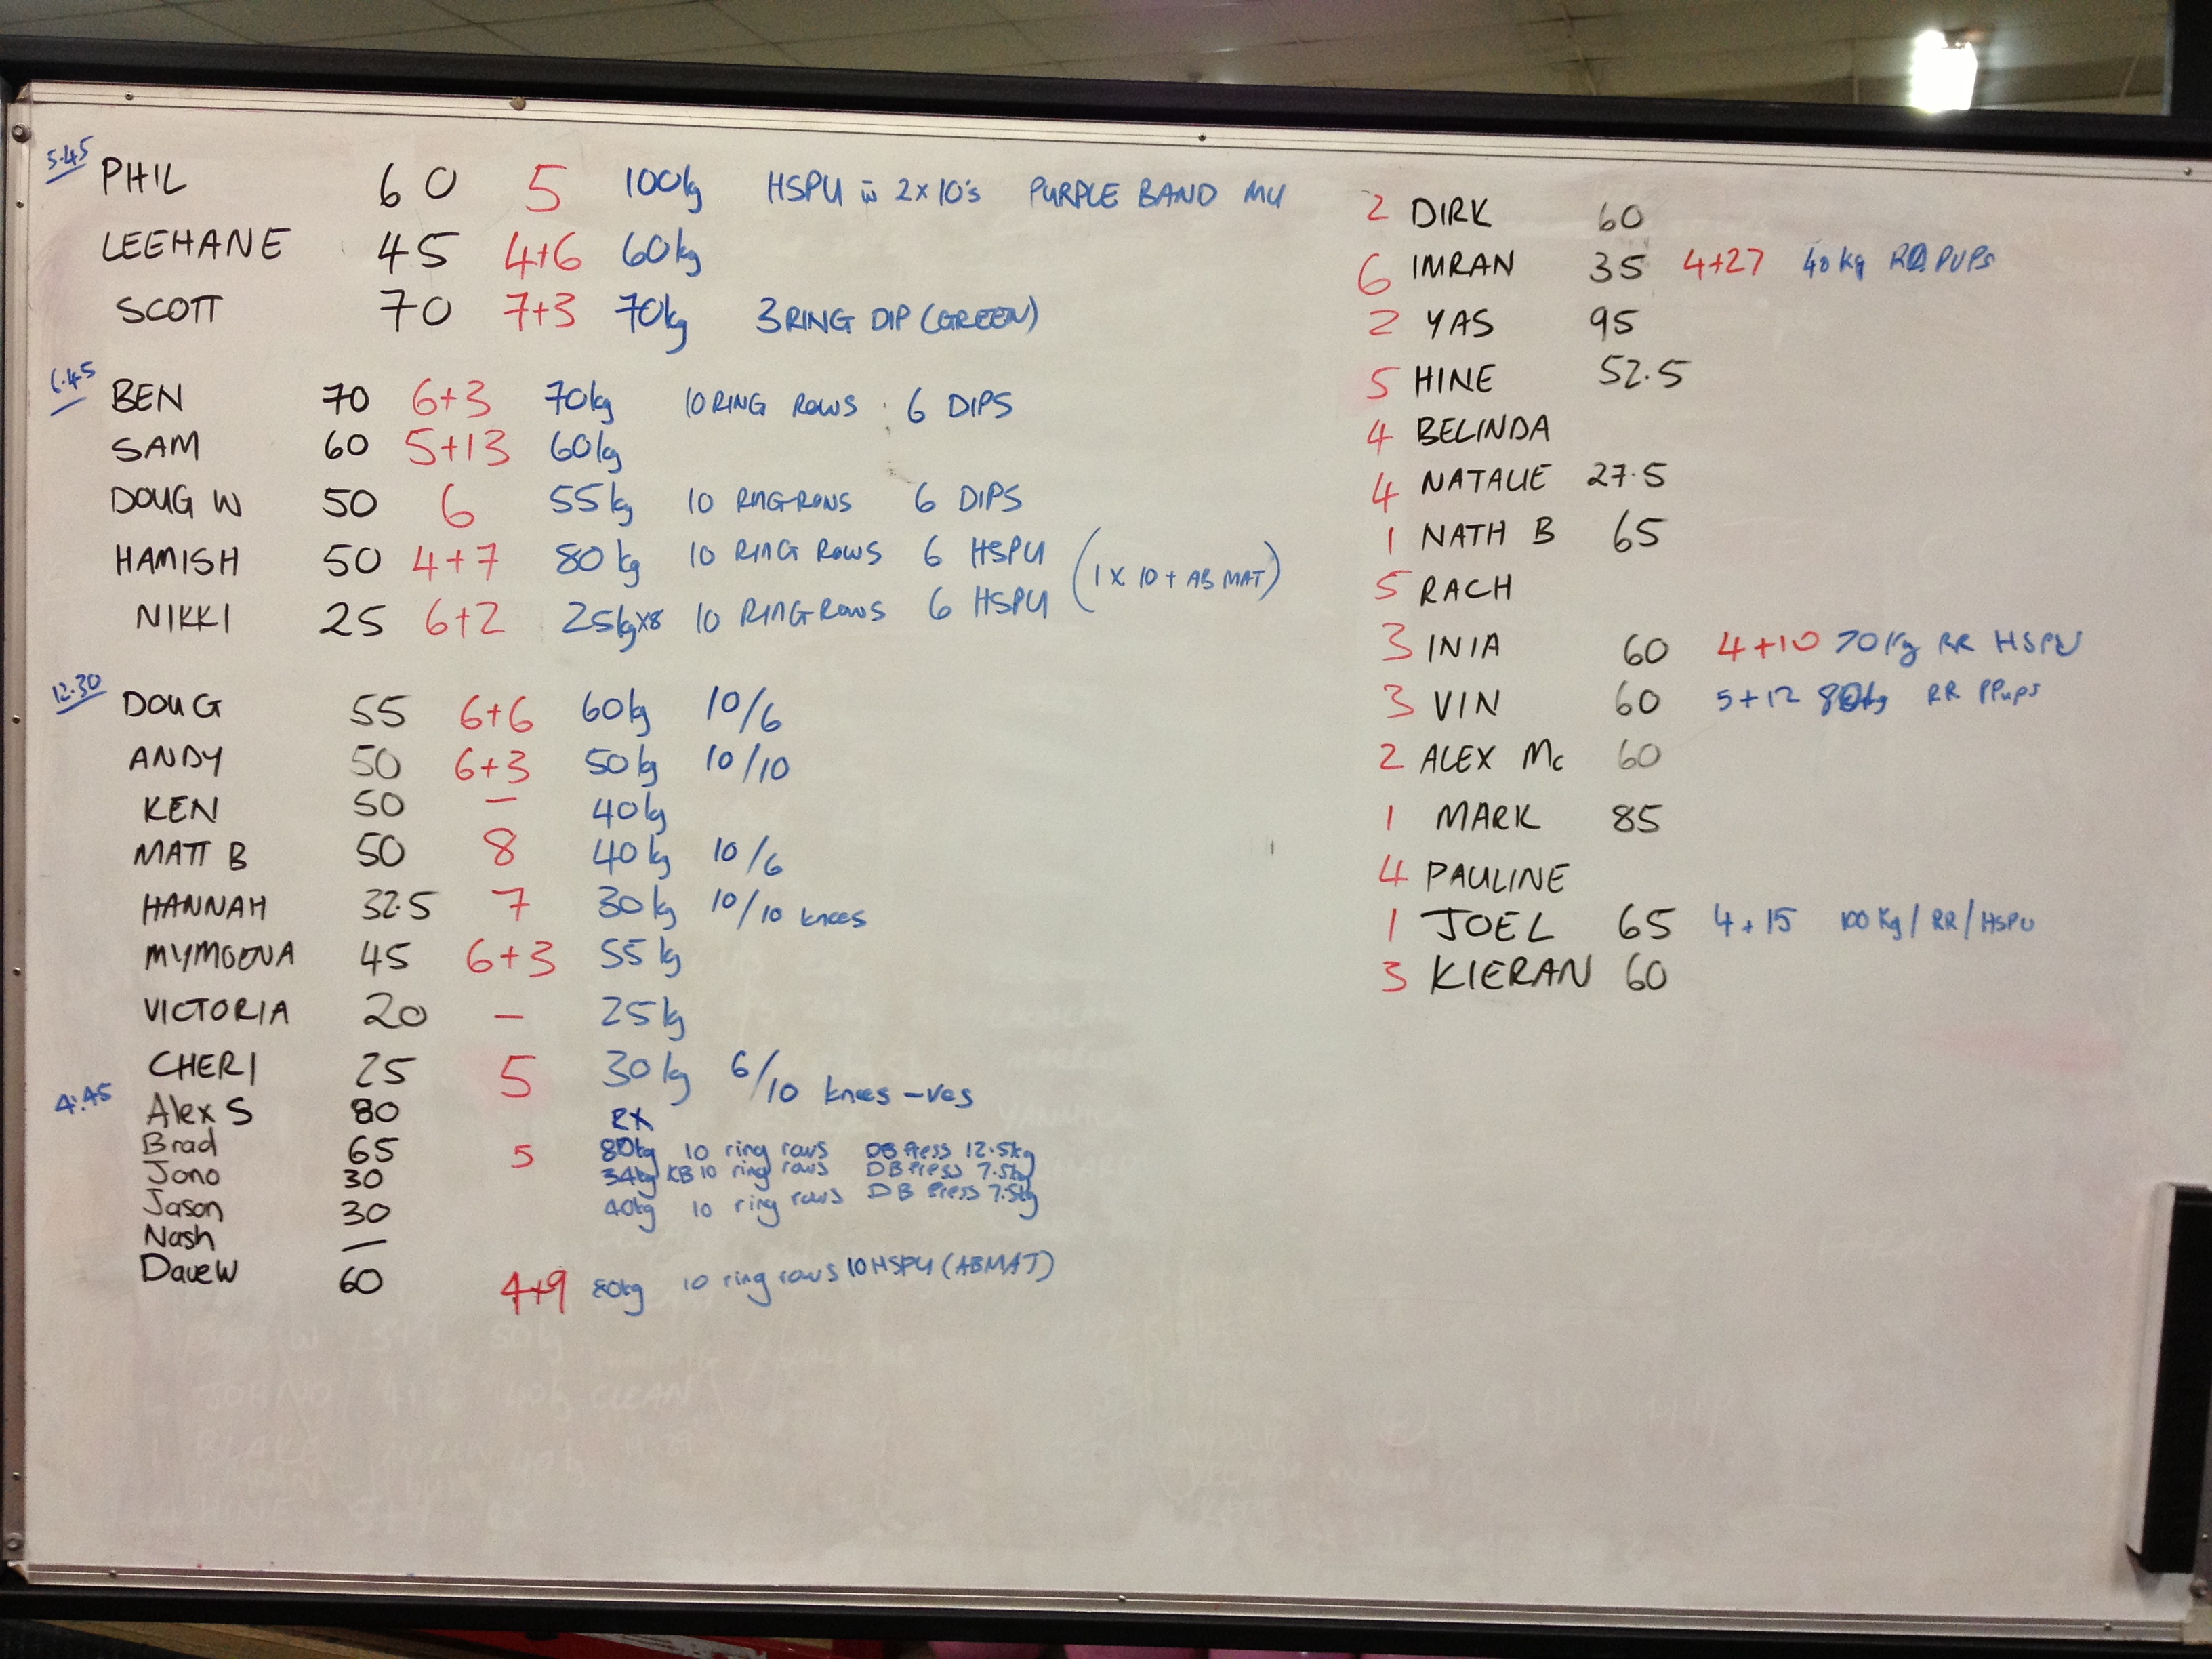 5.45
PHIL 60 5 100kg HSPU in 2x10's PURPLE BAND MU
LEEHANE 45 4+6 60kg
SCOTT 70 7+3 70kg 3 RING DIP (GREEN)
6.45
BEN 70 6+3 70kg 10 RING ROWS 6 DIPS
SAM 60 5+13 60kg
DOUG W 50 6 55kg 10 RING ROWS 6 DIPS
HAMISH 50 4+7 80kg 10 RING ROWS 6 HSPU (1 x 10 + AB MAT)
NIKKI 25 6+2 25kgx8 10 RING ROWS 6 HSPU
12.30
DOUG 55 6+6 60kg 10/6
ANDY 50 6+3 50kg 10/10
KEN 50 – 40kg
MATT B 50 8 40kg 10/6
HANNAH 32.5 7 30kg 10/10 knees
MYMOENA 45 6+3 55kg
VICTORIA 20 – 25kg
CHERI 25 5 30kg 6/10 knees -ves
4:45
Alex S 80 RX
Brad 65 5 80kg 10 ring rows DB Press 12.5kg
Jono 30 34kg KB 10 ring rows DB Press 7.5kg
Jason 30 40kg 10 ring rows DB Press 7.5kg
Nash —
Dave W 60 4+9 80kg 10 ring rows 10 HSPU (ABMAT)
2 DIRK 60
6 IMRAN 35 4+27 40kg PUPs
2 YAS 95
5 HINE 52.5
4 BELINDA
4 NATALIE 27.5
1 NATH B 65
5 RACH
3 INIA 60 4+10 70kg RR HSPU
3 VIN 60 5+12 80kg RR PPups
2 ALEX Mc 60
1 MARK 85
4 PAULINE
1 JOEL 65 4+15 100kg/RR/HSPU
3 KIERAN 60